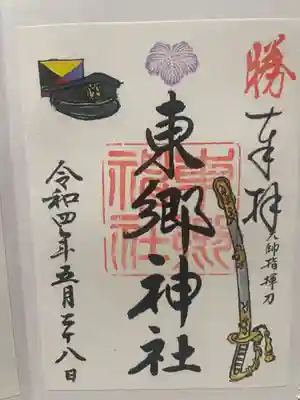 勝
奉拝
元帥指揮刀
東郷神社
令和四年五月二十八日